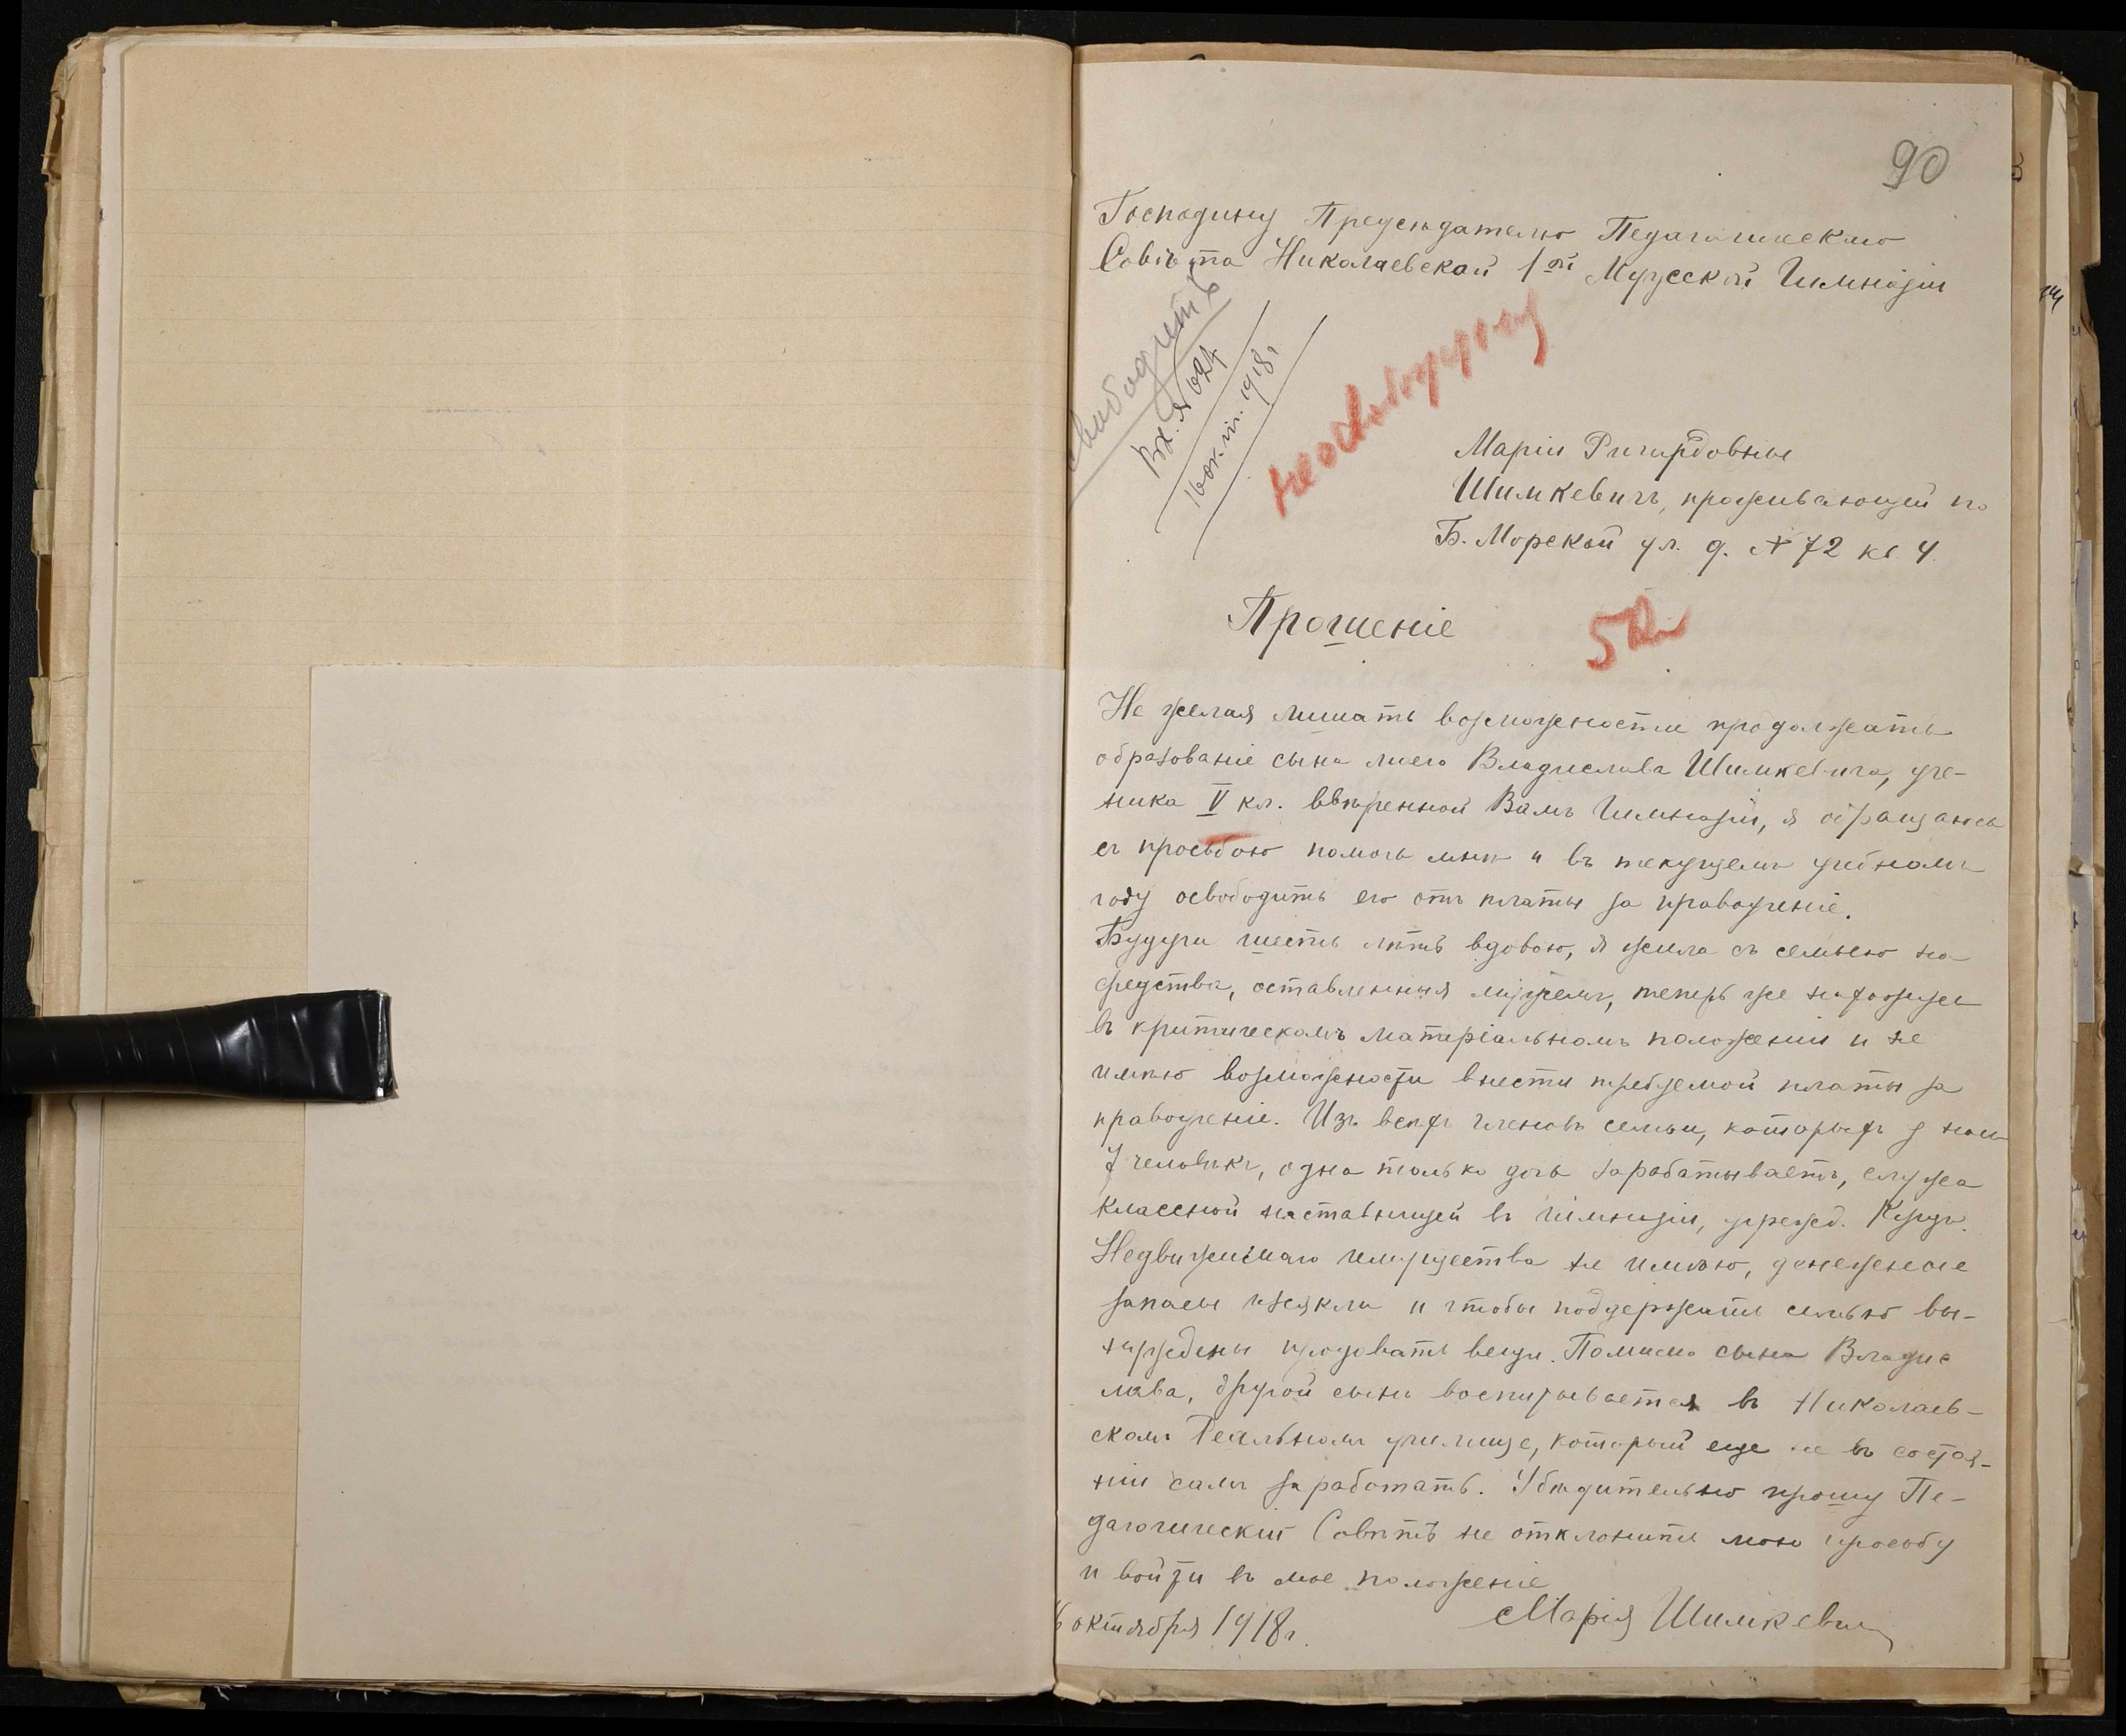 90
Господину Предсѣдателю Педагогическаго
Совѣта Николаевской 1ой Мужской Гимназіи
Вх. № 694
16 окт. 1918 г
Маріи Ричардовны
Шимкевичъ, проживающей по
Б. Морской ул. д. № 72 кв. 4.
Прошеніе
50
Не желая лишать возможности продолжать
образованіе сына моего Владислава Шимкевича, уче-
ника V кл. ввѣренной Вамъ Гимназіи, я обращаюсь
съ просьбою помочь мнѣ и въ текущемъ учебномъ
году освободить его отъ платы за правоученіе.
Будучи шесть лѣтъ вдовою, я жила съ семьею на
средства, оставленныя мужемъ, теперь же нахожусь
въ критическомъ матеріальномъ положеніи и не
имѣю возможности внести требуемой платы за
правоученіе. Изъ всѣхъ членовъ семьи, которыхъ у насъ
7 человѣкъ, одна только дочь зарабатываетъ, служа
классной наставницей въ гимназіи, учрежд.
Недвижимаго имущества не имѣю, денежные
запасы изсякли и чтобы поддержать семью вы-
нуждены продовать вещи. Помимо сына Владис
лава, другой сынъ воспитывается въ Николаев-
скомъ Реальномъ училище, который еще не въ состоя-
ніи самъ заработать. Убѣдительно прошу Пе-
дагогическій Совѣтъ не отклонить мою просьбу
и войти въ мое положеніе
16 октября 1918 г.
Марія Шимкевичъ